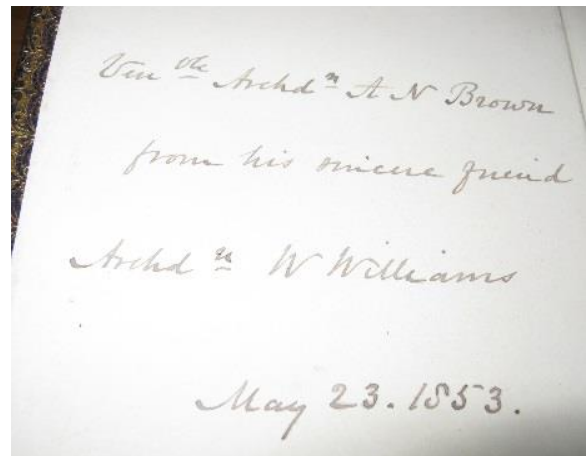 Venble Archdn A N Brown
from his sincere friend
Archdn W Williams
May 23. 1853.